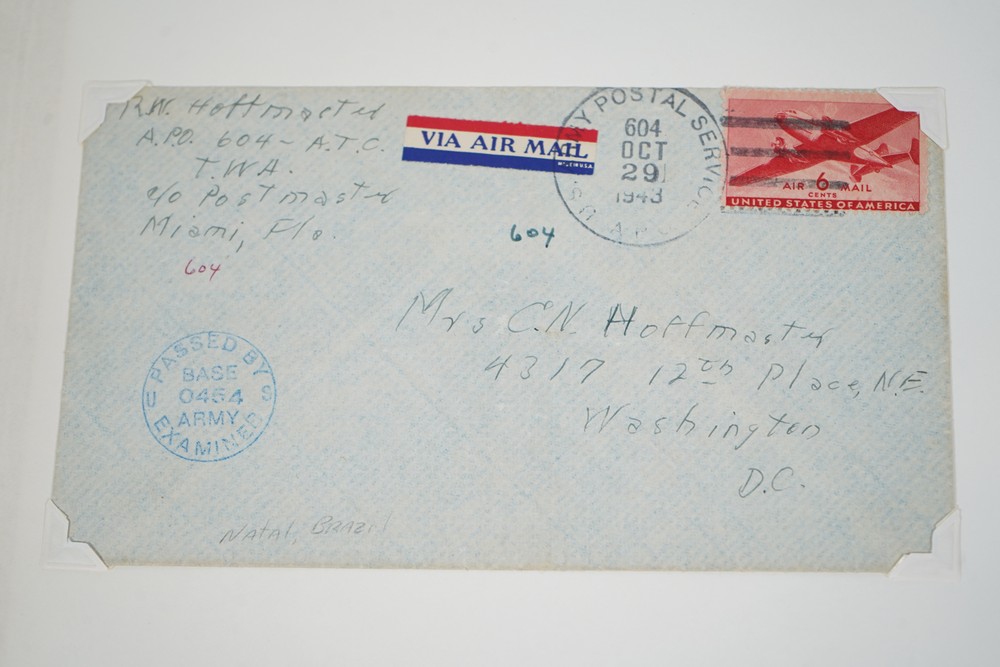 R.W. Hoffmaster
A.P.O. 604 - A.T.C.
T.W.A.
c/o Postmaster
Miami, Fla.
604
VIA AIR MAIL
U.S. ARMY POSTAL SERVICE
604
OCT
29
1943
A.P.O.
AIR 6 MAIL
CENTS
UNITED STATES OF AMERICA
604
Mrs C.N. Hoffmaster
4317 12th Place, N.E.
Washington
D.C.
PASSED BY
BASE
U 0454 S
ARMY
EXAMINER
Natal, Brazil